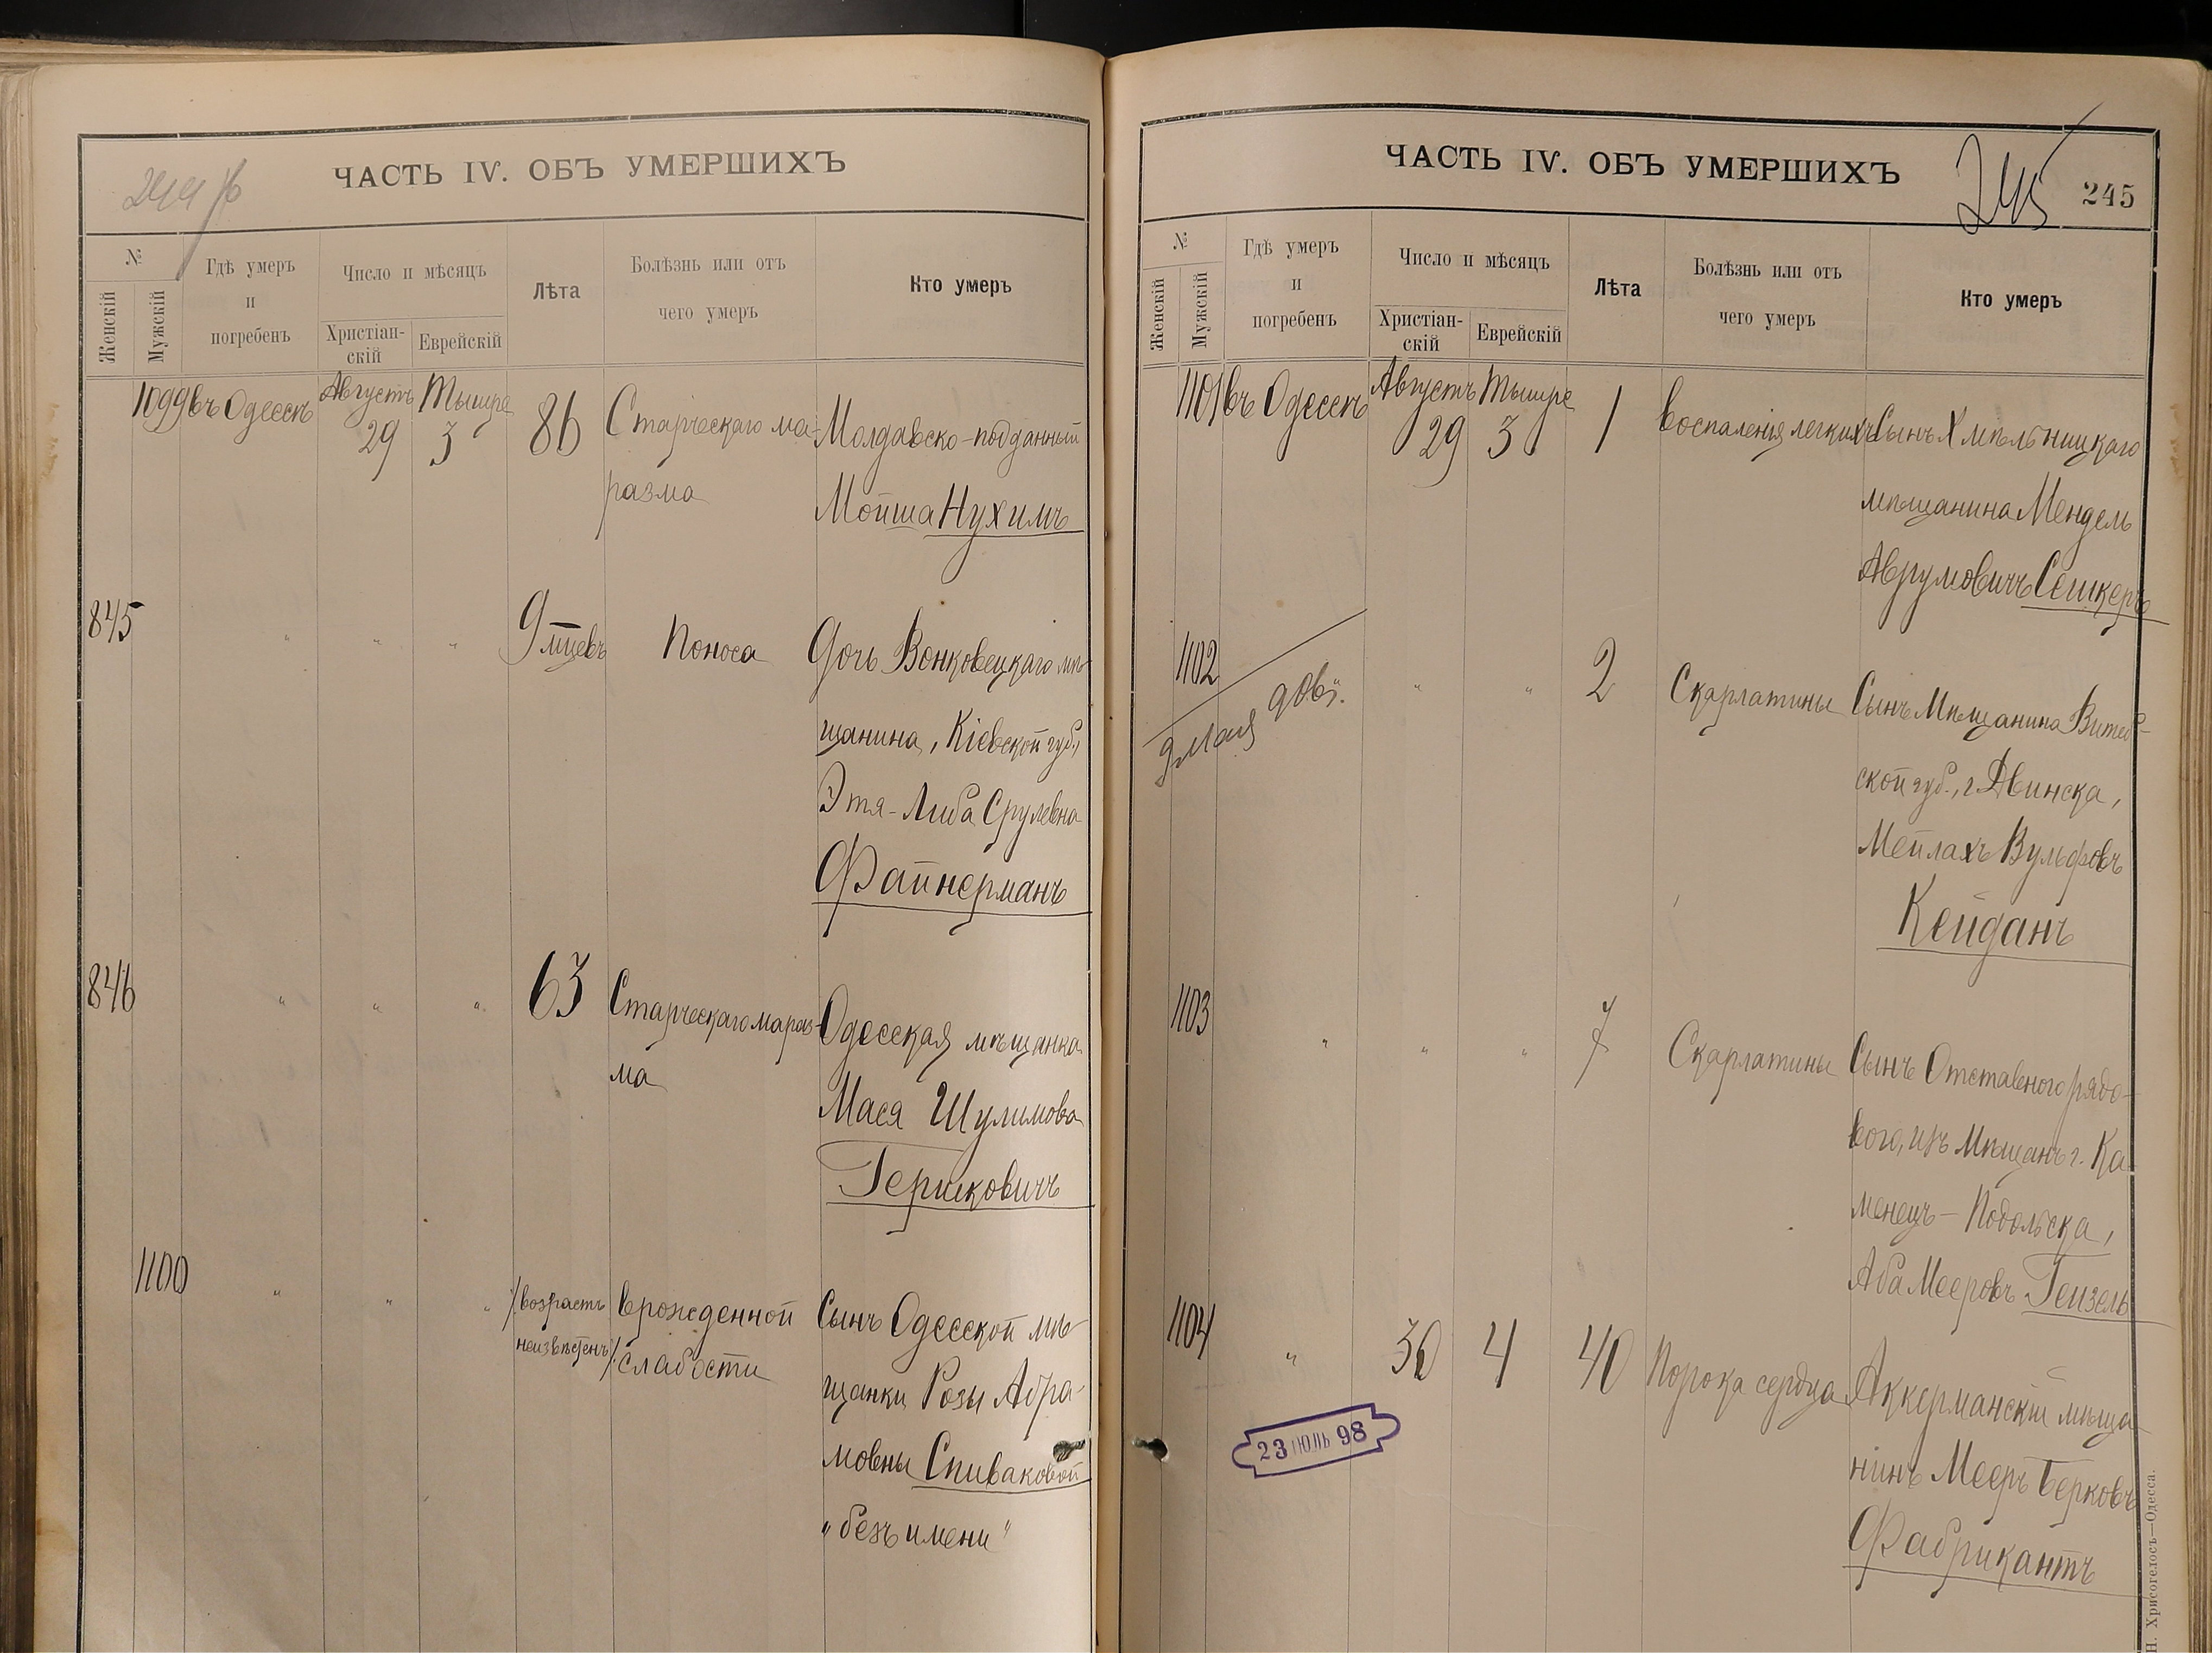 244 об
ЧАСТЬ IV. ОБЪ УМЕРШИХЪ
№
Женскій
Мужскій
Гдѣ умеръ
и
погребенъ
Число и мѣсяцъ
Христіан-
скій
Еврейскій
Лѣта
Болѣзнь или отъ
чего умеръ
Кто умеръ
1099 въ Одессѣ Августъ 29 Тышре 3 86 Старческаго ма-
разма
Молдавско-подданный
Мойша Нухимъ
845 " " " 9 мцевъ Поноса Дочь Вонковецкаго мѣ-
щанина, Кіевской губ.,
Этя-Либа Срулевна
Файнерманъ
846 " " " 63 Старческаго мараз-
ма
Одесская мѣщанка
Мася Шулимова
Гершковичъ
1100 " " " /возрастъ
неизвѣстенъ/
врожденной
слабости
Сынъ Одесской мѣ-
щанки Розы Абра-
мовны Спиваковой
"безъ имени"
ЧАСТЬ IV. ОБЪ УМЕРШИХЪ
245
245
№
Женскій
Мужскій
Гдѣ умеръ
и
погребенъ
Число и мѣсяцъ
Христіан-
скій
Еврейскій
Лѣта
Болѣзнь или отъ
чего умеръ
Кто умеръ
1101 въ Одессѣ Августъ 29 Тышре 3 1 воспаленія легкихъ Сынъ Хмѣльницкаго
мѣщанина Мендель
Аврумовичъ Сешкеръ
1102 " " 2 Скарлатины Сынъ Мѣщанина Витеб-
ской губ., г. Двинска,
Мейлахъ Вульфовъ
Кейданъ
1103 " " " 7 Скарлатины Сынъ Отставного рядо-
вого, изъ Мѣщанъ г. Ка-
менецъ-Подольска,
Аба Мееровъ Гейзель
1104 " 30 4 40 Порока сердца Аккерманскій мѣща-
нинъ Мееръ Берковъ
Фабрикантъ
23 ІЮЛЬ 98
Н. Хрисогелосъ—Одесса.